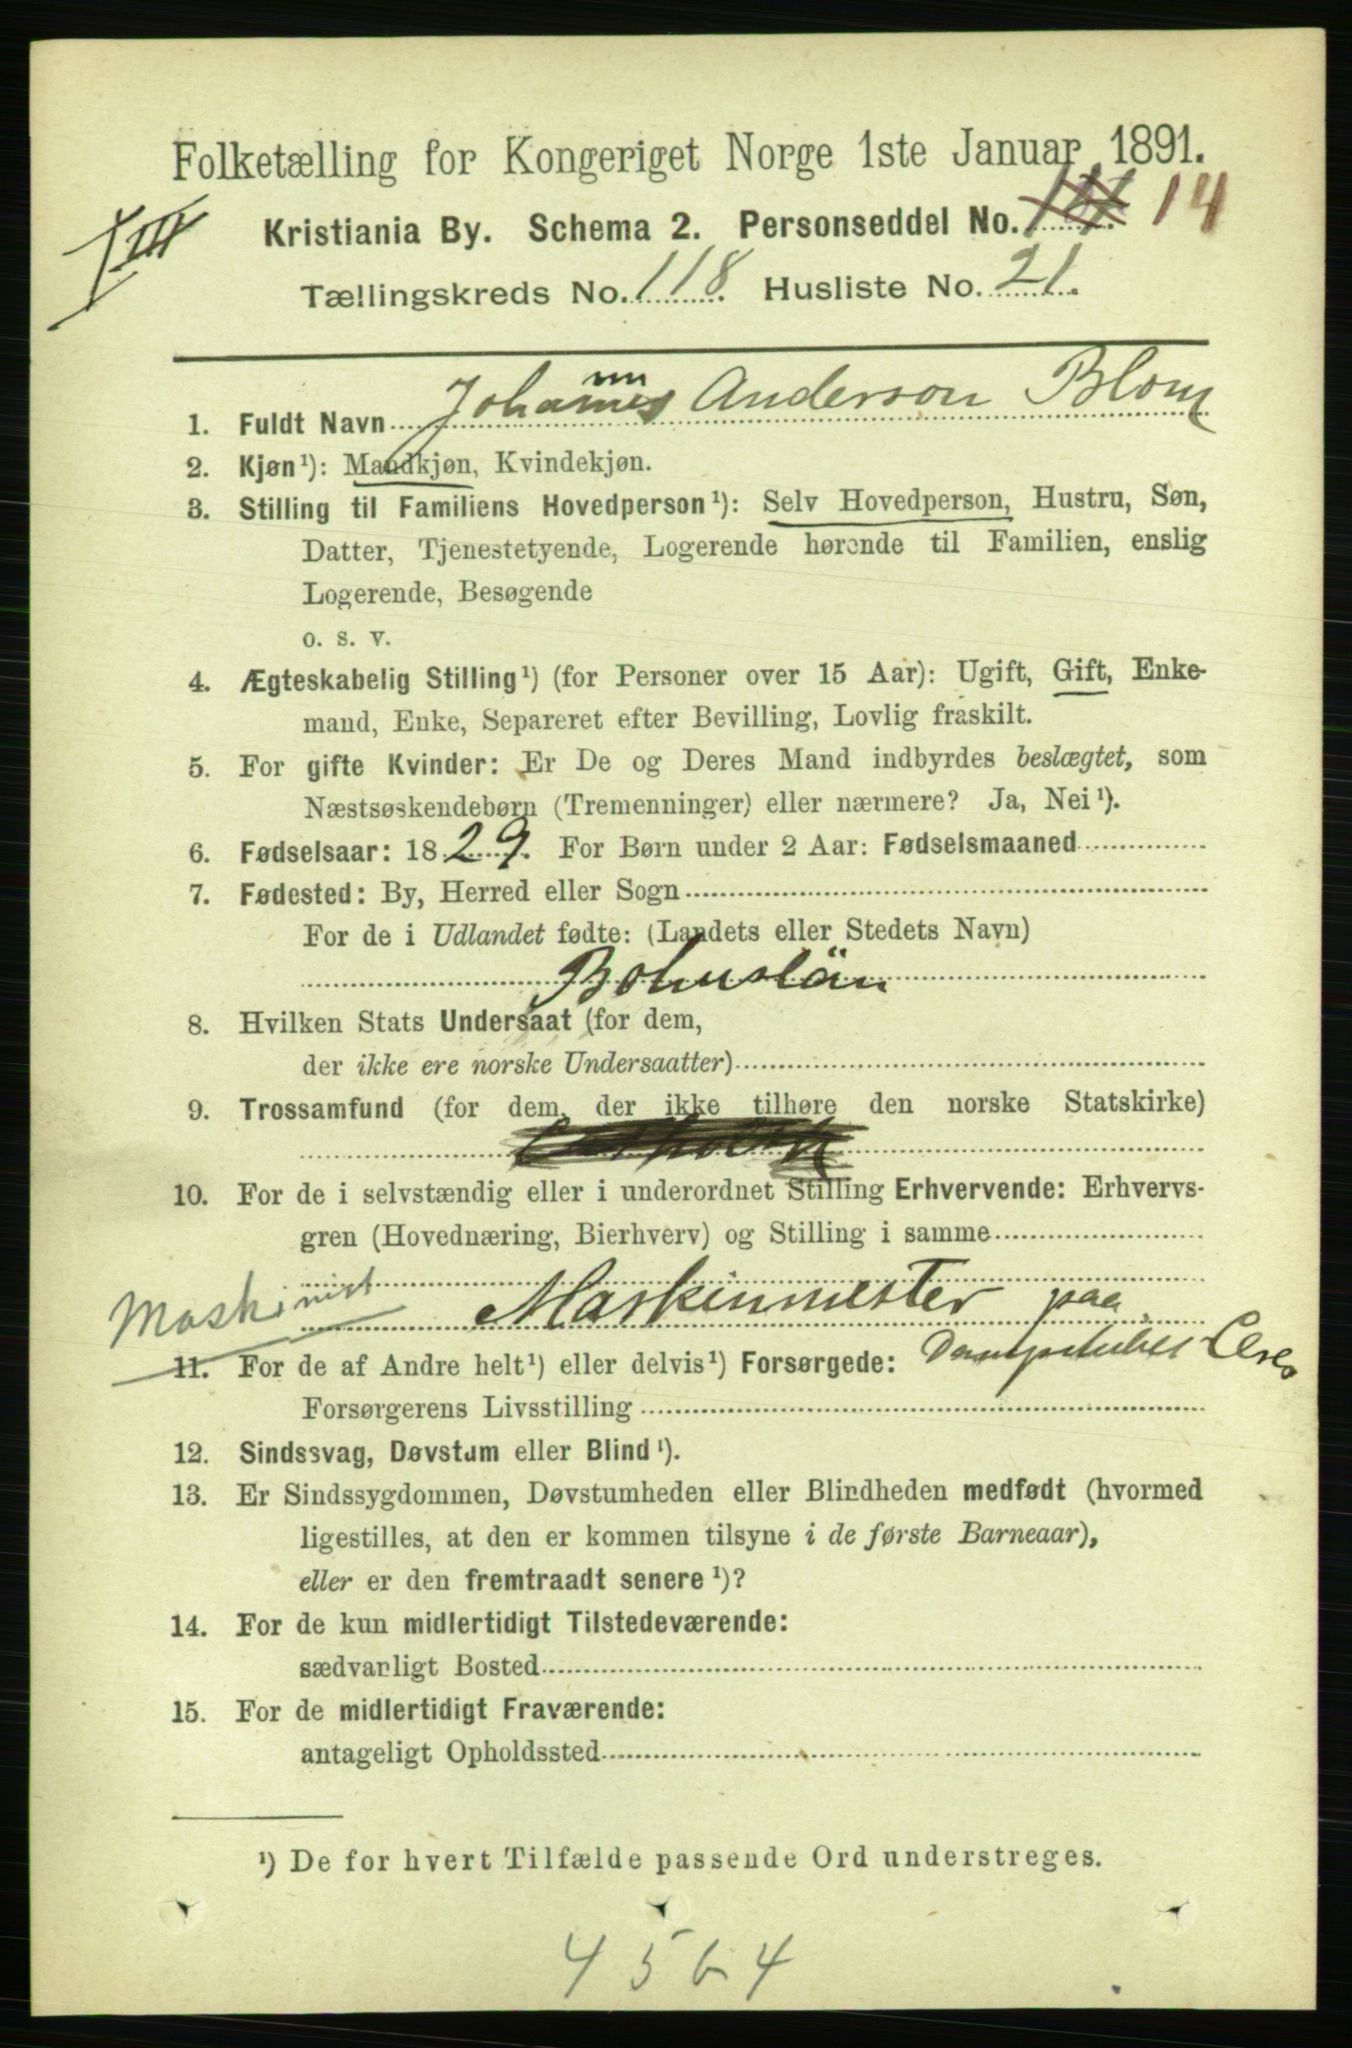 Folketælling for Kongeriget Norge 1ste Januar 1891.
VIII
Kristiania By. Schema 2. Personseddel No. 14
Tællingskreds No. 118. Husliste No. 21.
1. Fuldt Navn Johannes Anderson Blom
2. Kjøn¹): Mandkjøn, Kvindekjøn.
3. Stilling til Familiens Hovedperson¹): Selv Hovedperson, Hustru, Søn,
Datter, Tjenestetyende, Logerende hørende til Familien, enslig
Logerende, Besøgende
o. s. v.
4. Ægteskabelig Stilling¹) (for Personer over 15 Aar): Ugift, Gift, Enke-
mand, Enke, Separeret efter Bevilling, Lovlig fraskilt.
5. For gifte Kvinder: Er De og Deres Mand indbyrdes beslægtet, som
Næstsøskendebørn (Tremenninger) eller nærmere? Ja, Nei¹).
6. Fødselsaar: 1829. For Børn under 2 Aar: Fødselsmaaned
7. Fødested: By, Herred eller Sogn
For de i Udlandet fødte: (Landets eller Stedets Navn)
Bohuslän
8. Hvilken Stats Undersaat (for dem,
der ikke ere norske Undersaatter)
9. Trossamfund (for dem, der ikke tilhøre den norske Statskirke)
10. For de i selvstændig eller i underordnet Stilling Erhvervende: Erhvervs-
gren (Hovednæring, Bierhverv) og Stilling i samme
Maskinist Maskinmester paa
11. For de af Andre helt¹) eller delvis¹) Forsørgede: Dampskibet Ceres
Forsørgerens Livsstilling
12. Sindssvag, Døvstum eller Blind¹).
13. Er Sindssygdommen, Døvstumheden eller Blindheden medfødt (hvormed
ligestilles, at den er kommen tilsyne i de første Barneaar),
eller er den fremtraadt senere¹)?
14. For de kun midlertidigt Tilstedeværende:
sædvanligt Bosted
15. For de midlertidigt Fraværende:
antageligt Opholdssted
¹) De for hvert Tilfælde passende Ord understreges.
4564